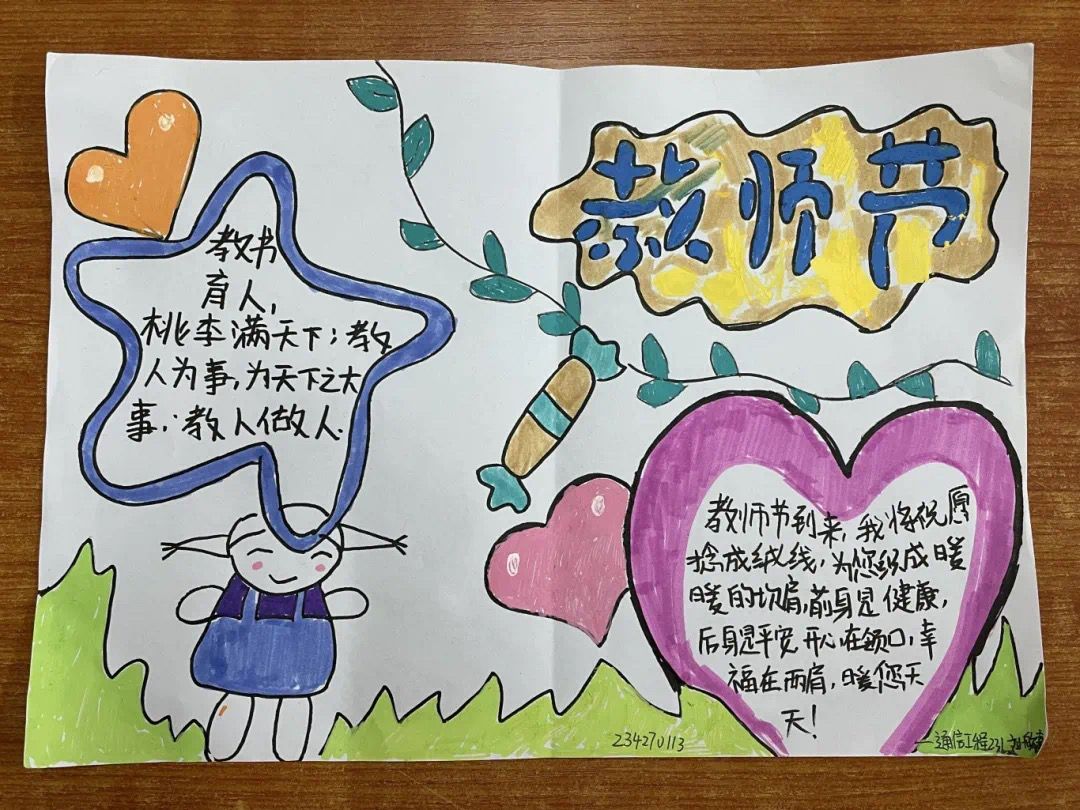 教师节
教书
育人，
桃李满天下；教
人为事，为天下之大
事；教人做人.
教师节到来，我将祝愿
捻成绒线，为您织成暖
暖的坎肩，前身是健康，
后身是平安，开心在领口，幸
福在两肩，暖您天
天！
234270113
通信工程231